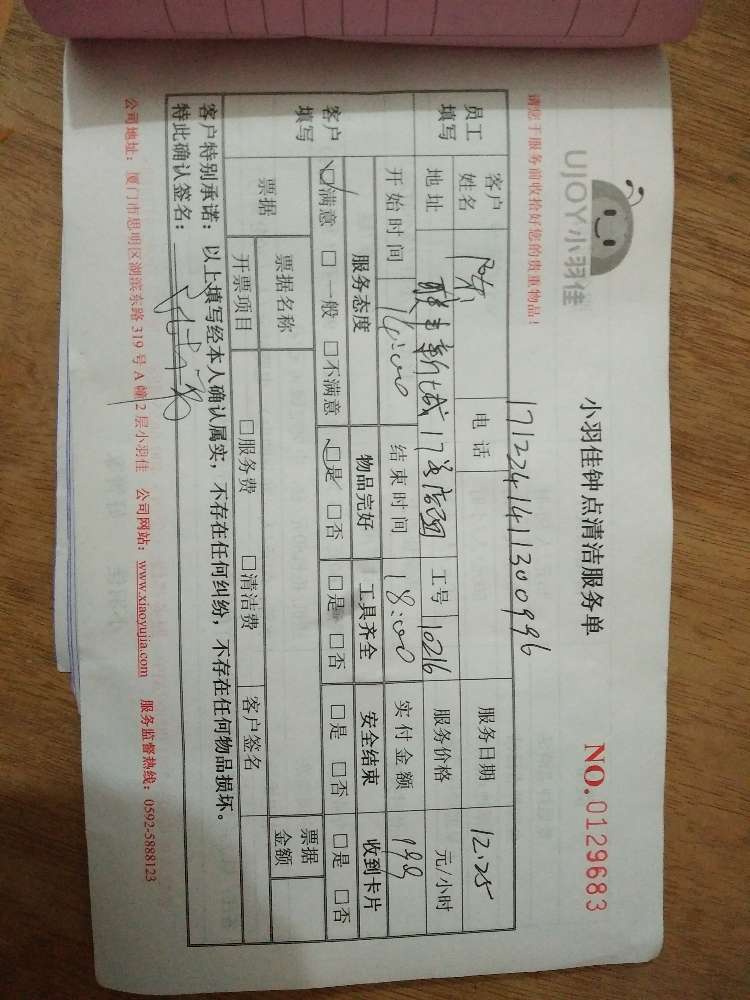 UJOY小羽佳
小羽佳钟点清洁服务单
NO.0129683
请您于服务前收拾好您的贵重物品！
1712241411300996
员工填写
客户姓名 陈 电话 服务日期 12.25
地址 新城17 工号 10216 服务价格 元/小时
开始时间 14:00 结束时间 18:00 实付金额 199
客户填写
服务态度 物品完好 工具齐全 安全结束 收到卡片
☑满意 □一般 □不满意 ☑是 □否 □是 □否 □是 □否 □是 □否
票据
票据名称 票据金额
开票项目 □服务费 □清洁费 客户签名
客户特别承诺：以上填写经本人确认属实，不存在任何纠纷，不存在任何物品损坏。
特此确认签名：
公司地址：厦门市思明区湖滨东路 319 号 A 幢 2 层小羽佳 公司网站：www.xiaoyujia.com 服务监督热线：0592-5888123